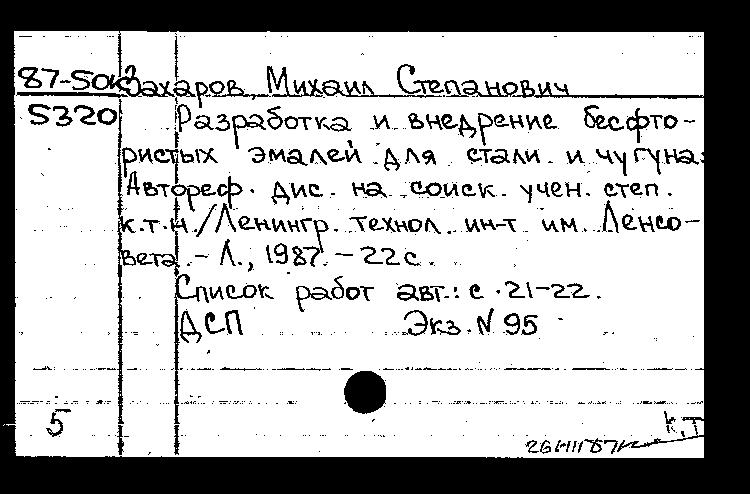 87-50к Захаров, Михаил Степанович
5320 Разработка и внедрение бесфто-
ристых эмалей для стали и чугуна:
Автореф. дис. на соиск. учен. степ.
к.т.н./Ленингр. технол. ин-т им. Ленсо-
вета. - Л., 1987. - 22с.
Список работ авт.: с. 21-22.
ДСП Экз. N 95
5 к.т